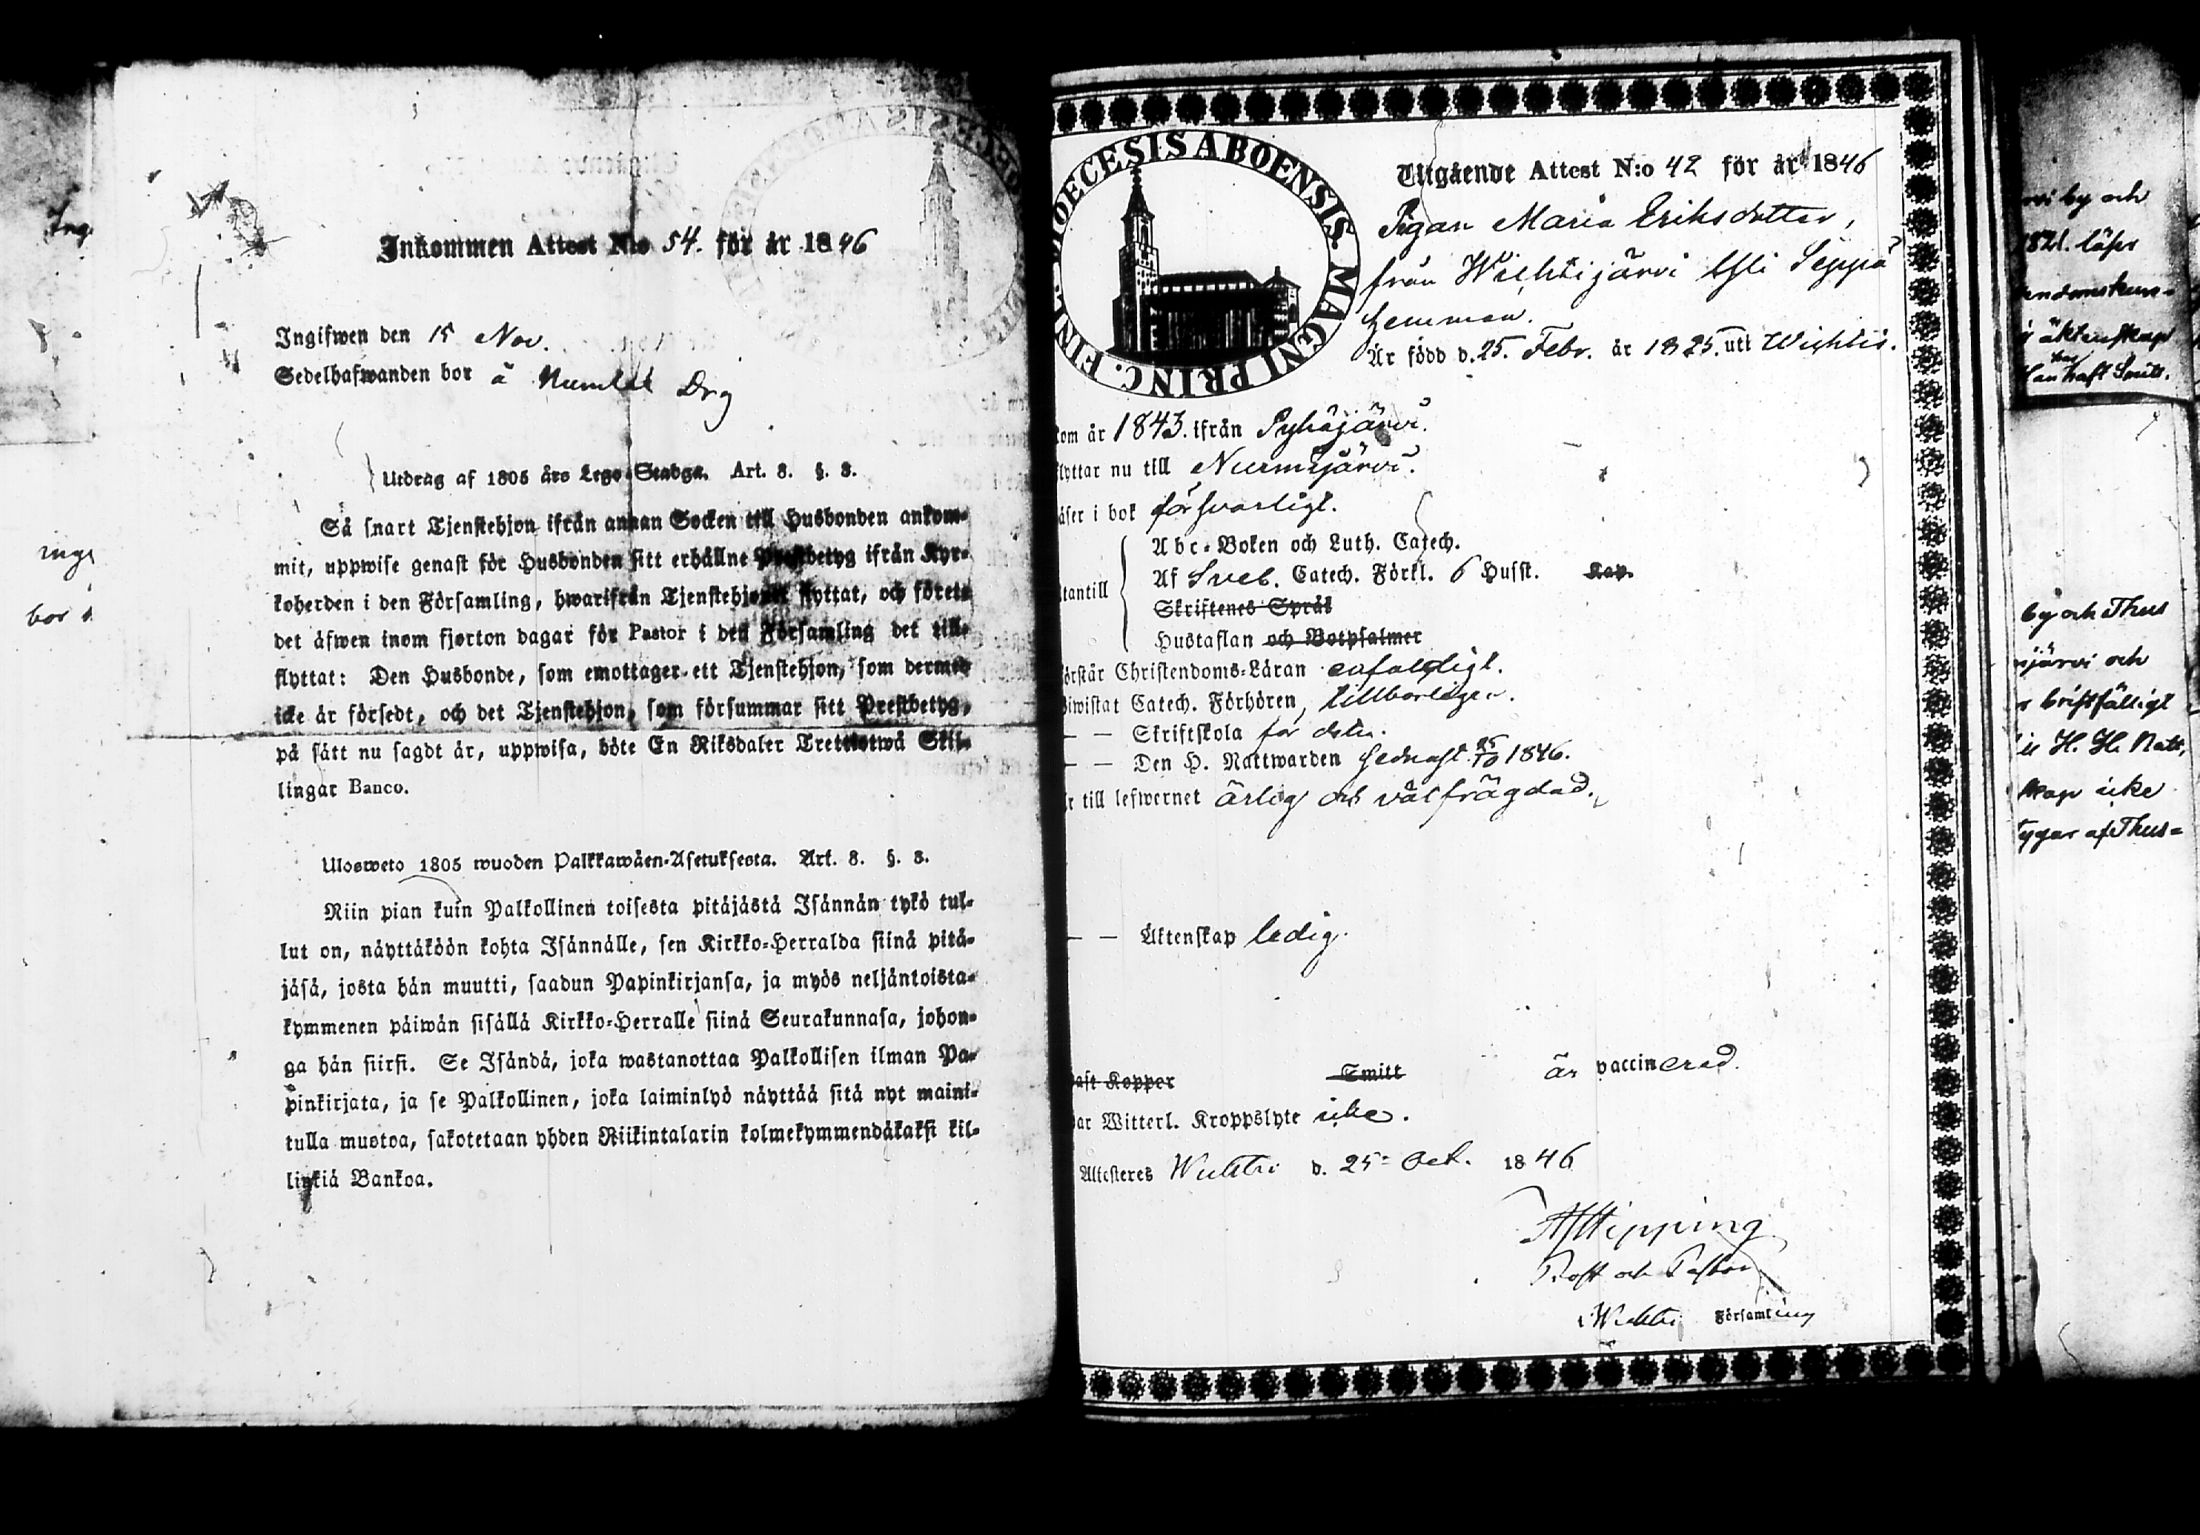 Inkommen Attest N:o 54. för år 1846
Ingifwen den 15 Nov.
Sedelhafwanden bor å Numlax Drg
Utdrag af 1805 års Lego-Stadga. Art. 8. §. 8.
Så snart Tjenstehjon ifrån annan Socken till Husbonden ankom-
mit, uppwise genast för Husbonden sitt erhållne Prestbetyg ifrån Kyr-
koherden i den Församling, hwarifrån Tjenstehjonet flyttat, och förete
det äfwen inom fjorton dagar för Pastor i den Församling det till-
flyttat: Den Husbonde, som emottager ett Tjenstehjon, som dermed
icke är försedt, och det Tjenstehjon, som försummar sitt Prestbetyg,
på sätt nu sagdt är, uppwisa, böte En Riksdaler Trettiotwå Skil-
lingar Banco.
Ulosweto 1805 wuoden Palkkawäen-Asetuksesta. Art. 8. §. 8.
Niin pian kuin Palkollinen toisesta pitäjästä Isännän tykö tul-
lut on, näyttäköön kohta Isännälle, sen Kirkko-Herralda siinä pitä-
jäsä, josta hän muutti, saadun Papinkirjansa, ja myös neljäntoista-
kymmenen päiwän sisällä Kirkko-Herralle siinä Seurakunnasa, johon-
ga hän siirsi. Se Isändä, joka wastanottaa Palkollisen ilman Pa-
pinkirjata, ja se Palkollinen, joka laiminlyö näyttää sitä nyt maini-
tulla muotoa, sakotetaan yhden Riikintalarin kolmekymmendäkaksi kil-
linkiä Bankoa.
DIOECESIS ABOENSIS MAGNI PRINC. FINL.
Utgående Attest N:o 42 för år 1846
Pigan Maria Eriksdotter,
från Wichtijärvi by Seppä
hemman.
Är född d. 25. Febr. år 1825. uti Wichtis.
kom år 1843. ifrån Pyhäjärvi.
flyttar nu till Nurmijärvi.
läser i bok försvarligt.
Abc-Boken och Luth. Catech.
utantill Af Sveb. Catech. Förkl. 6 Husst. Kap.
Skriftenes Språk
Hustaflan och Botpsalmer
förstår Christendoms-Läran enfaldigt.
biwistat Catech. Förhören, tillbörligen.
— — Skriftskola för detta.
— — Den H. Nattwarden sednast 25/10 1846.
är till lefwernet ärlig och välfrägdad.
— — Äktenskap ledig.
haft Koppor Smitt är vaccinerad.
har Witterl. Kroppslyte icke.
Attesteres Wichtis d. 25 Oct. 1846
AJHipping
Prost och Pastor
i Wichtis Församling
vi by och
1821. läser
i äktenskap
by och Thus
järvi och
bristfälligt
H. H. Natt,
skap icke
tygar af Thus=